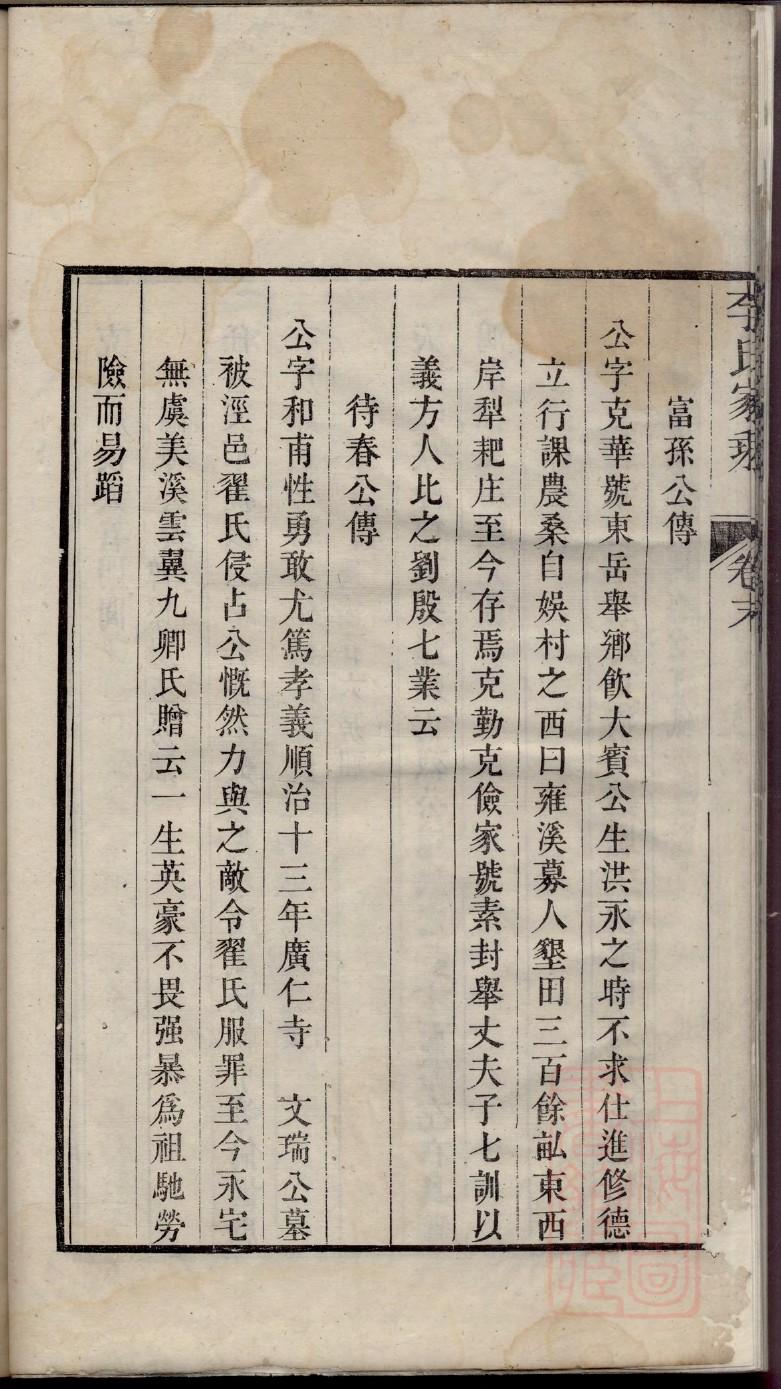 李氏家乘　卷末
富孫公傳
公字克華號東岳舉鄉飲大賓公生洪永之時不求仕進修德
立行課農桑自娛村之西曰雍溪募人墾田三百餘畝東西
岸犁耙庄至今存焉克勤克儉家號素封舉丈夫子七訓以
義方人比之劉殷七業云
待春公傳
公字和甫性勇敢尤篤孝義順治十三年廣仁寺　文瑞公墓
被涇邑翟氏侵占公慨然力與之敵令翟氏服罪至今永宅
無虞美溪雲翼九卿氏贈云一生英豪不畏强暴爲祖馳勞
險而易蹈